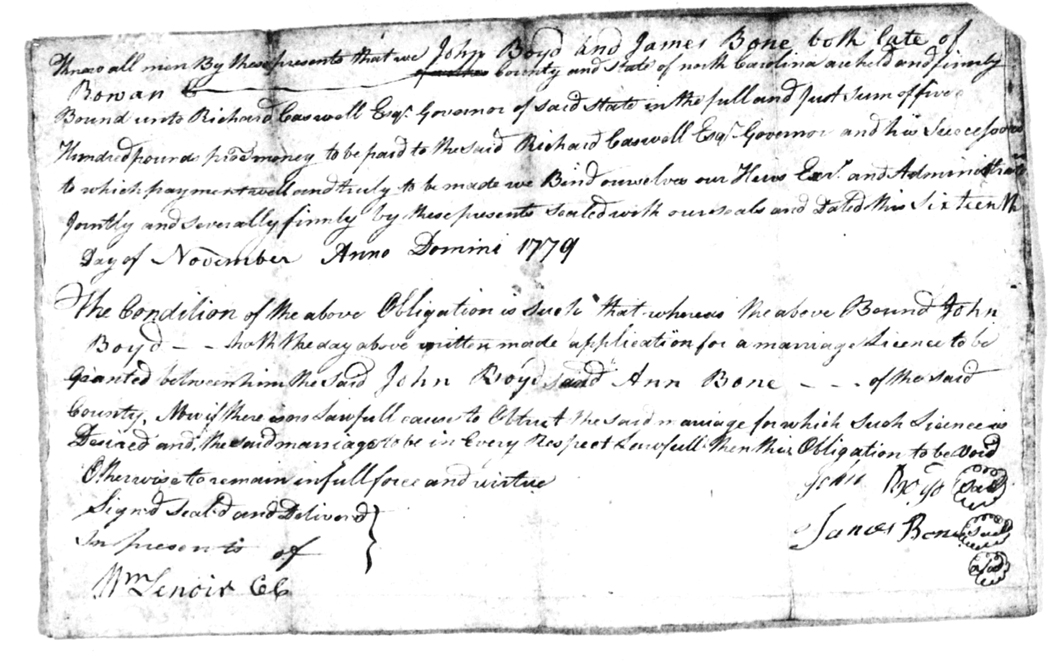 Know all men By these presents that we John Boyd and James Bone both late of
Rowan County and State of north Carolina are held and firmly
Bound unto Richard Caswell Esqr. Governor of said State in the full and Just Sum of five
Hundred pounds procl money to be paid to the said Richard Caswell Esqr. Governor and his Successors
to which payment well and truly to be made we Bind ourselves our Heirs Exr. and Administrators
Jointly and severally firmly by these presents sealed with our seals and Dated this Sixteenth
Day of November Anno Domini 1779
The Condition of the above Obligation is such that whereas the above Bound John
Boyd - - hath the day above written made application for a marriage Licence to be
Granted between him the said John Boyd and Ann Bone - - - of the said
County. Now if there is no Lawfull cause to Obtruct the said marriage for which Such Licence is
Desired and the said marriage to be in Every Respect Lawfull then this Obligation to be void
Otherwise to remain in full force and virtue
John Boyd Seal
Sign'd Seal'd and Deliver'd
James Bone Seal
In presents of
Seal
Wm Lenoir CC